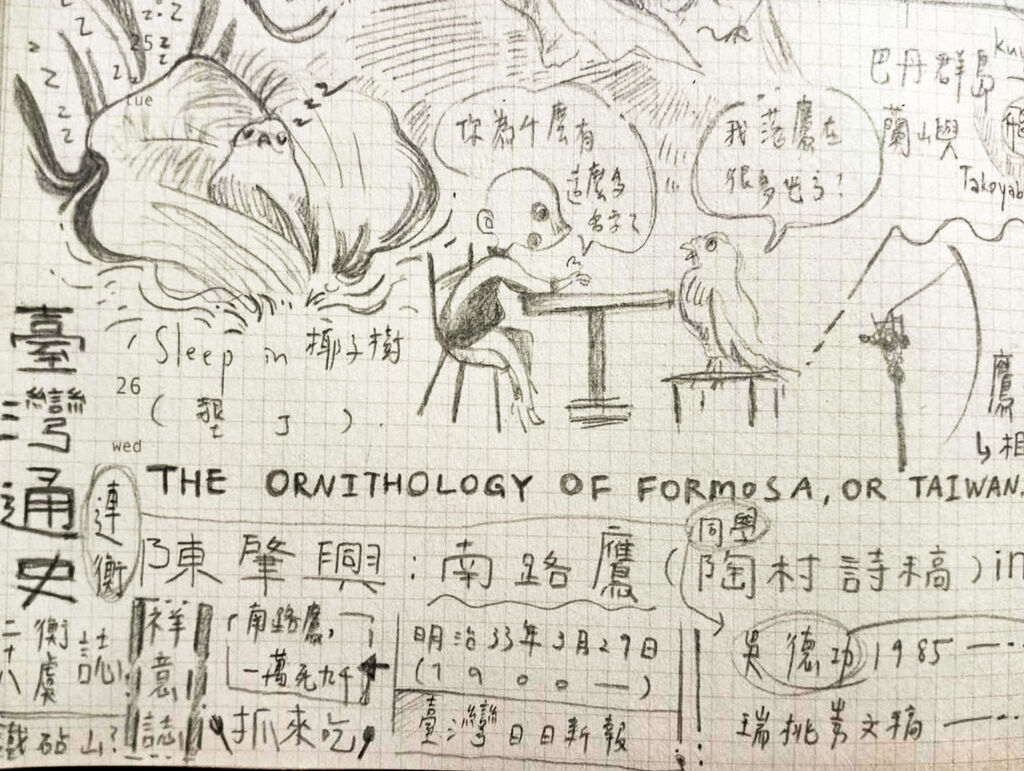 z z z
25
tue
z z z
你為什麼有
這麼多
名字？
我落鷹在
很多地方！
巴丹群島
蘭嶼
Sleep in 椰子樹
（墾丁）.
26
wed
鷹
↳相
臺灣通史
連衡
THE ORNITHOLOGY OF FORMOSA, OR TAIWAN.
同學
陳肇興：南路鷹（陶村詩稿）in
二十八
衡虞誌
鐵砧山？
祥意誌
「南路鷹，
一萬死九千」
抓來吃
明治33年3月29日
（1900一）
臺灣日日新報
吳德功 1985 一…
瑞桃齋文稿 一…